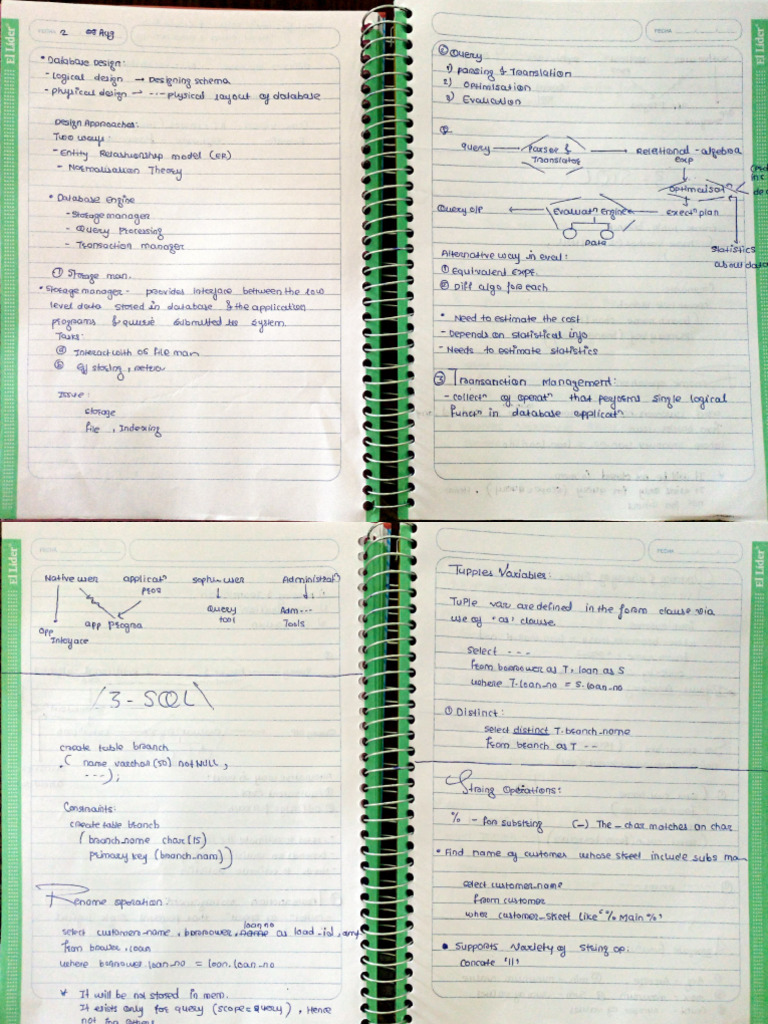 El Líder
FECHA 2 08 Aug
• Database Design:
- logical design → Designing schema
- physical design → -·- physical layout of database
Design Approaches:
Two ways:
- Entity Relationship model (ER)
- Normalisation Theory
• Database Engine
- Storage manager
- Query Processing
- Transaction manager
① Storage man.
• Storage manager - provides interface between the low
level data stored in database & the application
programs & queries submitted to system.
Tasks:
ⓐ Interact with OS file man
ⓑ Eff storing, retrev
Issue:
storage
file, Indexing
FECHA
② Query
1) parsing & Translation
2) Optimisation
3) Evaluation
Query → Parser & Translator → Relational-algebra exp
optimeisatn
Query O/P ← Evaluatn Engine ← exectn plan
Data
Statistics
about data
Alternative way in eval:
① Equivalent expr.
② Diff algo for each
• Need to estimate the cost
- Depends on statistical info
- Needs to estimate statistics
③ Transanction Management:
- collectn of operatn that performs single logical
functn in database applicatn
El Líder
FECHA
Native user applicatn prog sophis user Administratr
app Interface app progra Query tool Adm... Tools
3 - SQL
create table branch
( name varchar (50) not NULL,
---);
Constraints:
create table branch
( branch_name char(15)
primary key (branch_nam))
Rename operation:
loan no
select customer-name, borrower, as load-id, amt
from borrower, loan
where borrower.loan_no = loan.loan_no
* It will be not stored in mem.
It exists only for query (scope=query), Hence
FECHA
Tupples Variables:
Tuple var are defined in the form clause via
use of 'as' clause.
select ---
from borrower as T, loan as S
where T.loan_no = S.loan_no
① Distinct:
select distinct T.branch_name
from branch as T --
String Operations:
% - for substring (_) The _ char matches on char
• Find name of customer whose street include subs man
select customer_name
from customer
wher customer_street like "%Main%'
• Supports variety of string op:
concate '||'